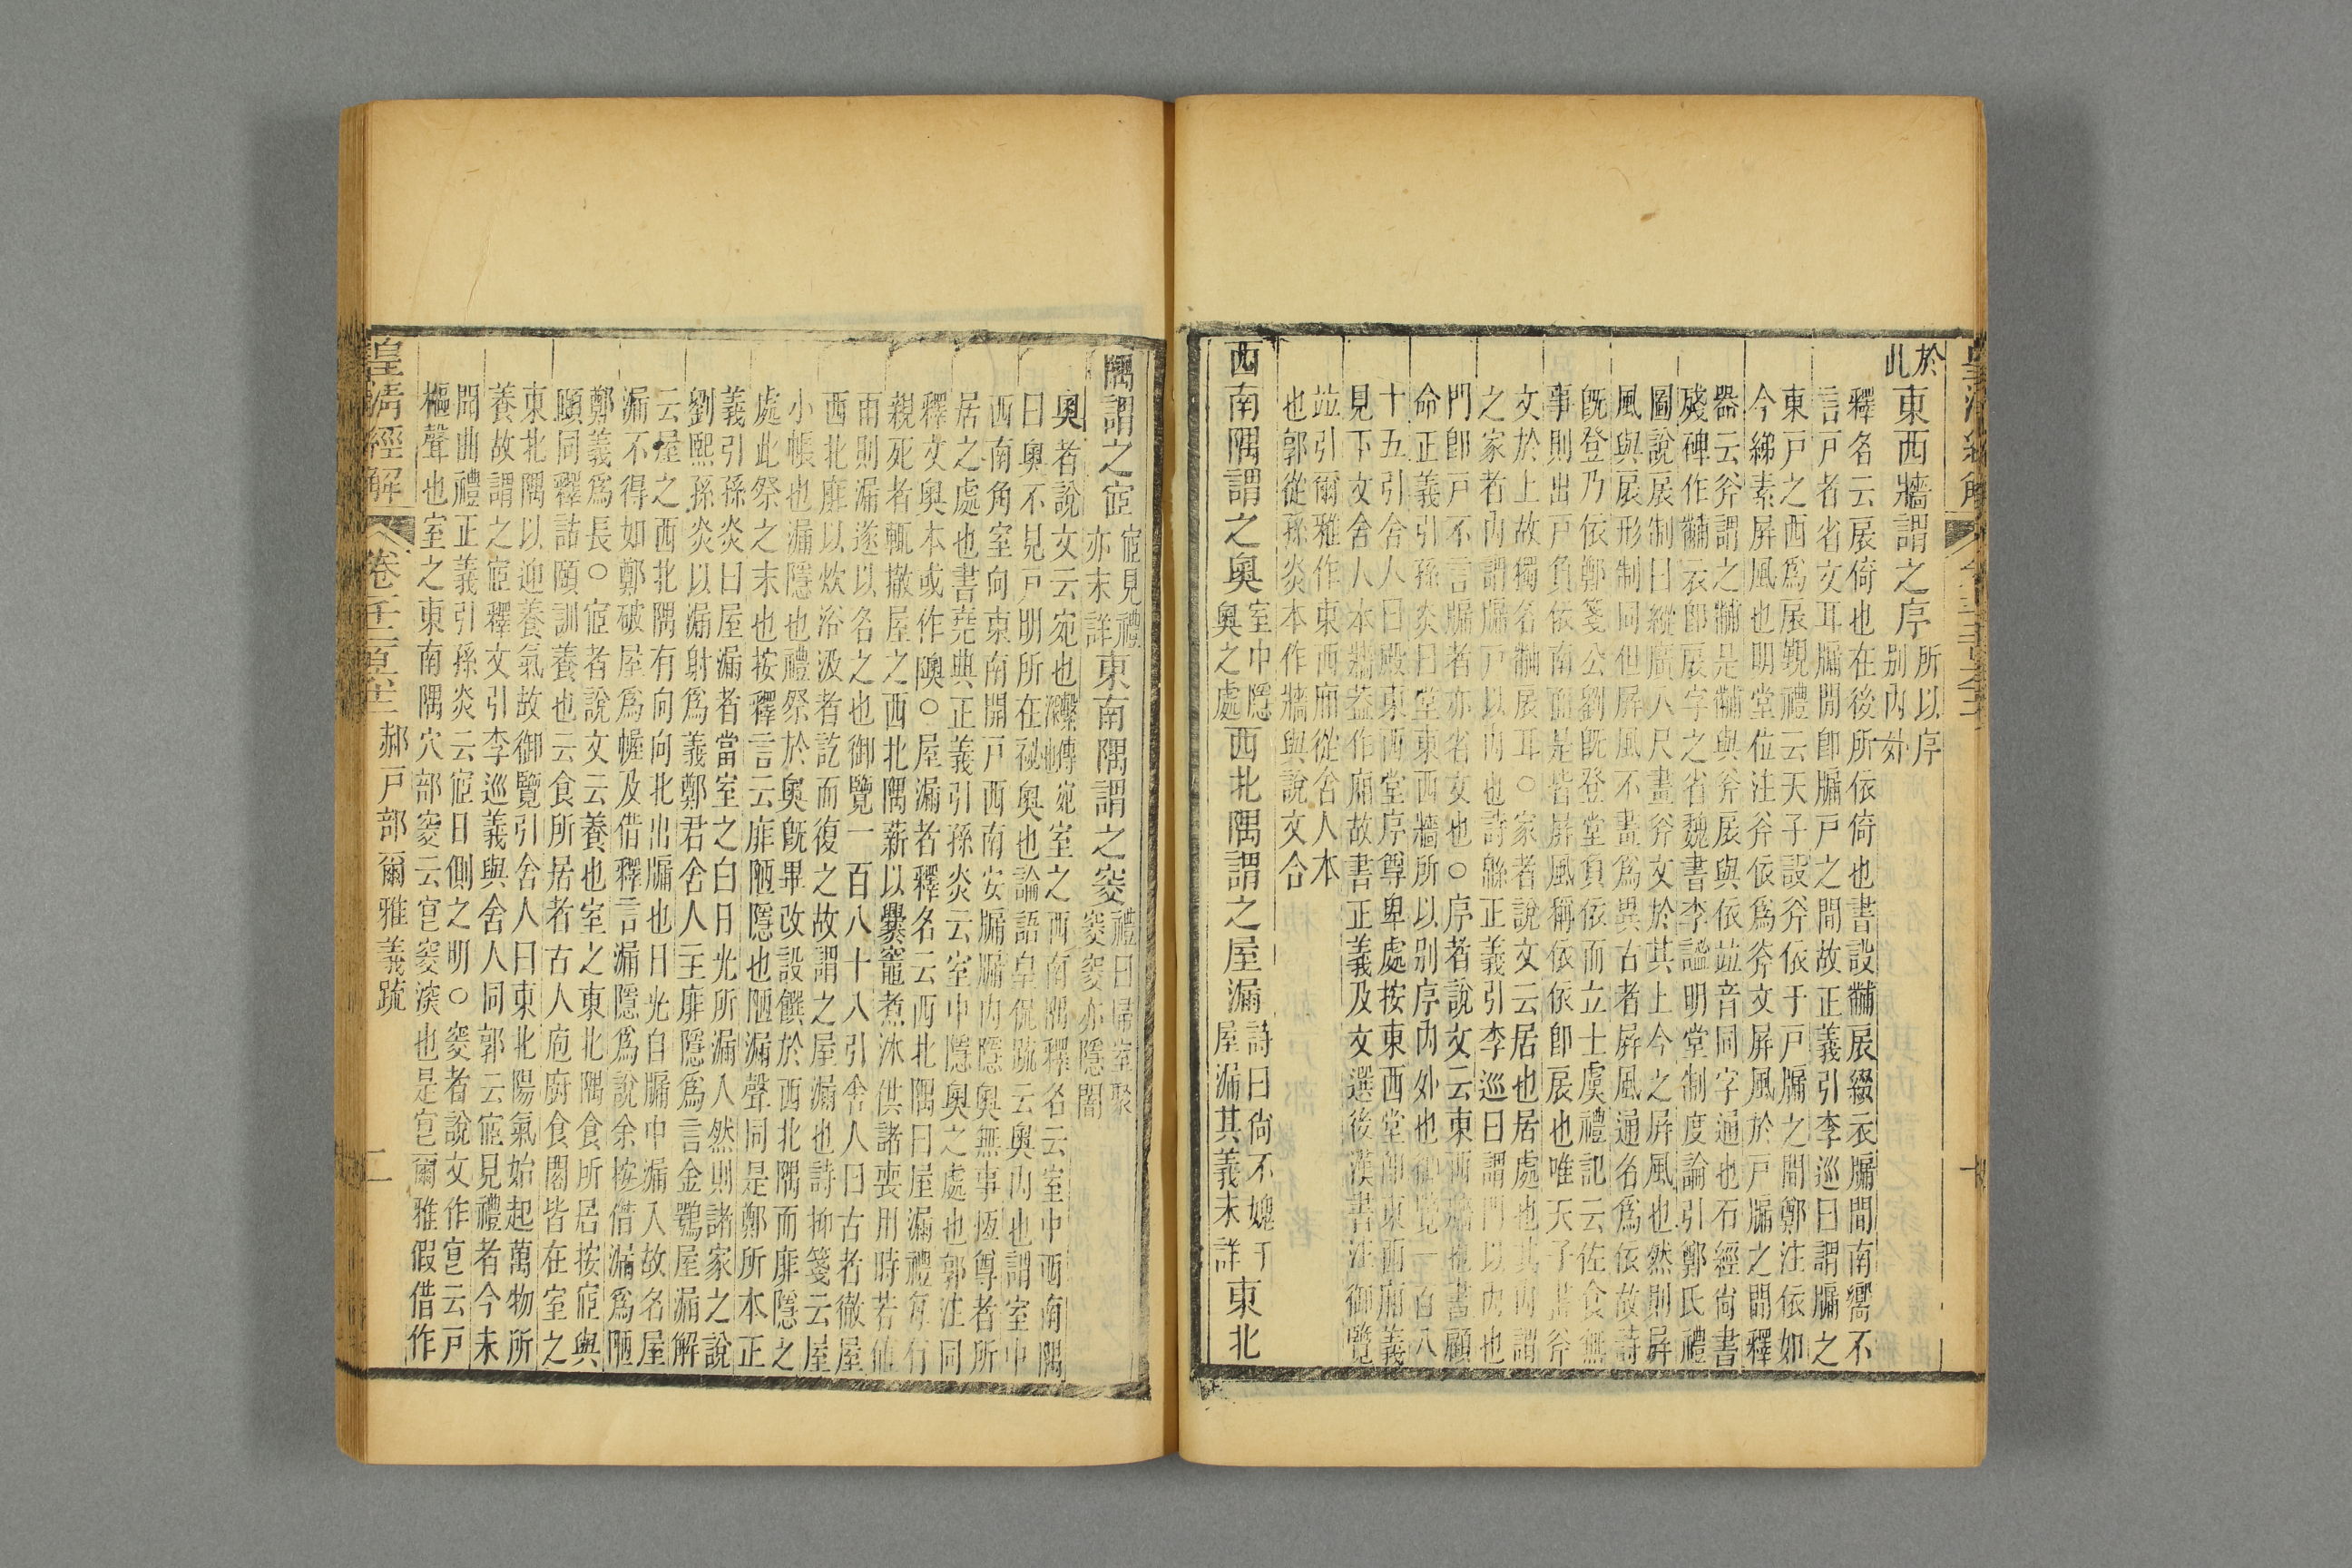 於
此
東西牆謂之序
所以序
別內外
釋名云扆倚也在後所依倚也書設黼扆綴衣牖間南嚮不
言戸者省文耳牖閒卽牖戸之間故正義引李巡曰謂牖之
東戸之西爲扆覲禮云天子設斧依于戸牖之間鄭注依如
今綈素屏風也明堂位注斧依爲斧文屏風於戸牖之閒釋
器云斧謂之黼是黼與斧扆與依竝音同字通也石經尙書
殘碑作黼衣卽扆字之省魏書李謐明堂制度論引鄭氏禮
圖說扆制曰縱廣八尺畫斧文於其上今之屏風也然則屏
風與扆形制同但屏風不畫爲異古者屏風通名爲依故詩
旣登乃依鄭箋公劉旣登堂負依而立士虞禮記云佐食無
事則出戸負依南面是皆屏風稱依依卽扆也唯天子畫斧
文於上故獨名黼扆耳○家者說文云居也居處也其內謂
之家者內謂牖戸以內也詩緜正義引李巡曰謂門以內也
門卽戸不言牖者亦省文也○序者說文云東西牆也書顧
命正義引孫炎曰堂東西牆所以別序內外也御覽一百八
十五引舍人曰殿東西堂序尊卑處按東西堂卽東西廂義
見下文舍人本牆蓋作廂故書正義及文選後漢書注御覽
竝引爾雅作東西廂從舍人本
也郭從孫炎本作牆與說文合
西南隅謂之奧
室中隱
奧之處
西北隅謂之屋漏
詩曰尙不媿于
屋漏其義未詳
東北
隅謂之宧
宧見禮
亦未詳
東南隅謂之窔
禮曰歸室聚
窔窔亦隱闇
奧者說文云宛也
宛室之西南隅釋名云室中西南隅
曰奧不見戸明所在祕奧也論語皇侃疏云奧內也謂室中
西南角室向東南開戸西南安牖牖內隱奧無事恆尊者所
居之處也書堯典正義引孫炎云室中隱奧之處也郭注同
釋文奧本或作隩○屋漏者釋名云西北隅曰屋漏禮每有
親死者輒撤屋之西北隅薪以爨竈煮沐供諸喪用時若値
雨則漏遂以名之也御覽一百八十八引舍人曰古者徹屋
西北厞以炊浴汲者訖而復之故謂之屋漏也詩抑箋云屋
小帳也漏隱也禮祭於奧旣畢改設饌於西北隅而厞隱之
處此祭之末也按釋言云厞陋隱也陋漏聲同是鄭所本正
義引孫炎曰屋漏者當室之白日光所漏入然則諸家之說
劉熙孫炎以漏射爲義鄭君舍人主厞隱爲言金鶚屋漏解
云屋之西北隅有向向北出牖也日光自牖中漏入故名屋
漏不得如鄭破屋爲幄及借釋言漏隱爲說余按借漏爲陋
鄭義爲長○宧者說文云養也室之東北隅食所居按宧與
頤同釋詁頤訓養也云食所居者古人庖廚食閣皆在室之
東北隅以迎養氣故御覽引舍人曰東北陽氣始起萬物所
養故謂之宧釋文引李巡義與舍人同郭云宧見禮者今未
聞曲禮正義引孫炎云宧日側之明○窔者說文作㝔云戸
樞聲也室之東南隅穴部窔云㝔窔㴱也是㝔爾雅假借作
皇清經解
卷
郝戸部爾雅義疏
二